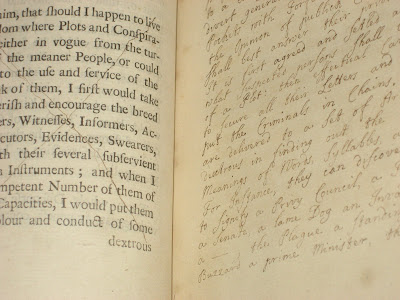 him, that should I happen to live
dom where Plots and Conspira-
either in vogue from the tur-
f the meaner People, or could
to the use and service of the
nk of them, I first would take
erish and encourage the breed
ers, Witnesses, Informers, Ac-
cutors, Evidences, Swearers,
th their several subservient
n Instruments; and when I
mpetent Number of them of
Capacities, I would put them
olour and conduct of some
dextrous
divert
Pockets with
the Opinion of publick
shall best answer their
It is first agreed and settled
what suspected persons shall
of a Plot: then effectual Car
to secure all their Letters and
put the Criminals in Chains.
are delivered to a Set of Ar
dextrous in finding out the
Meanings of Words, Syllables,
For Instance, they can discover
to signify a Privy Council, a
a Senate a lame Dog an Inva
the Plague a Standing
Buzzard a prime Minister, th